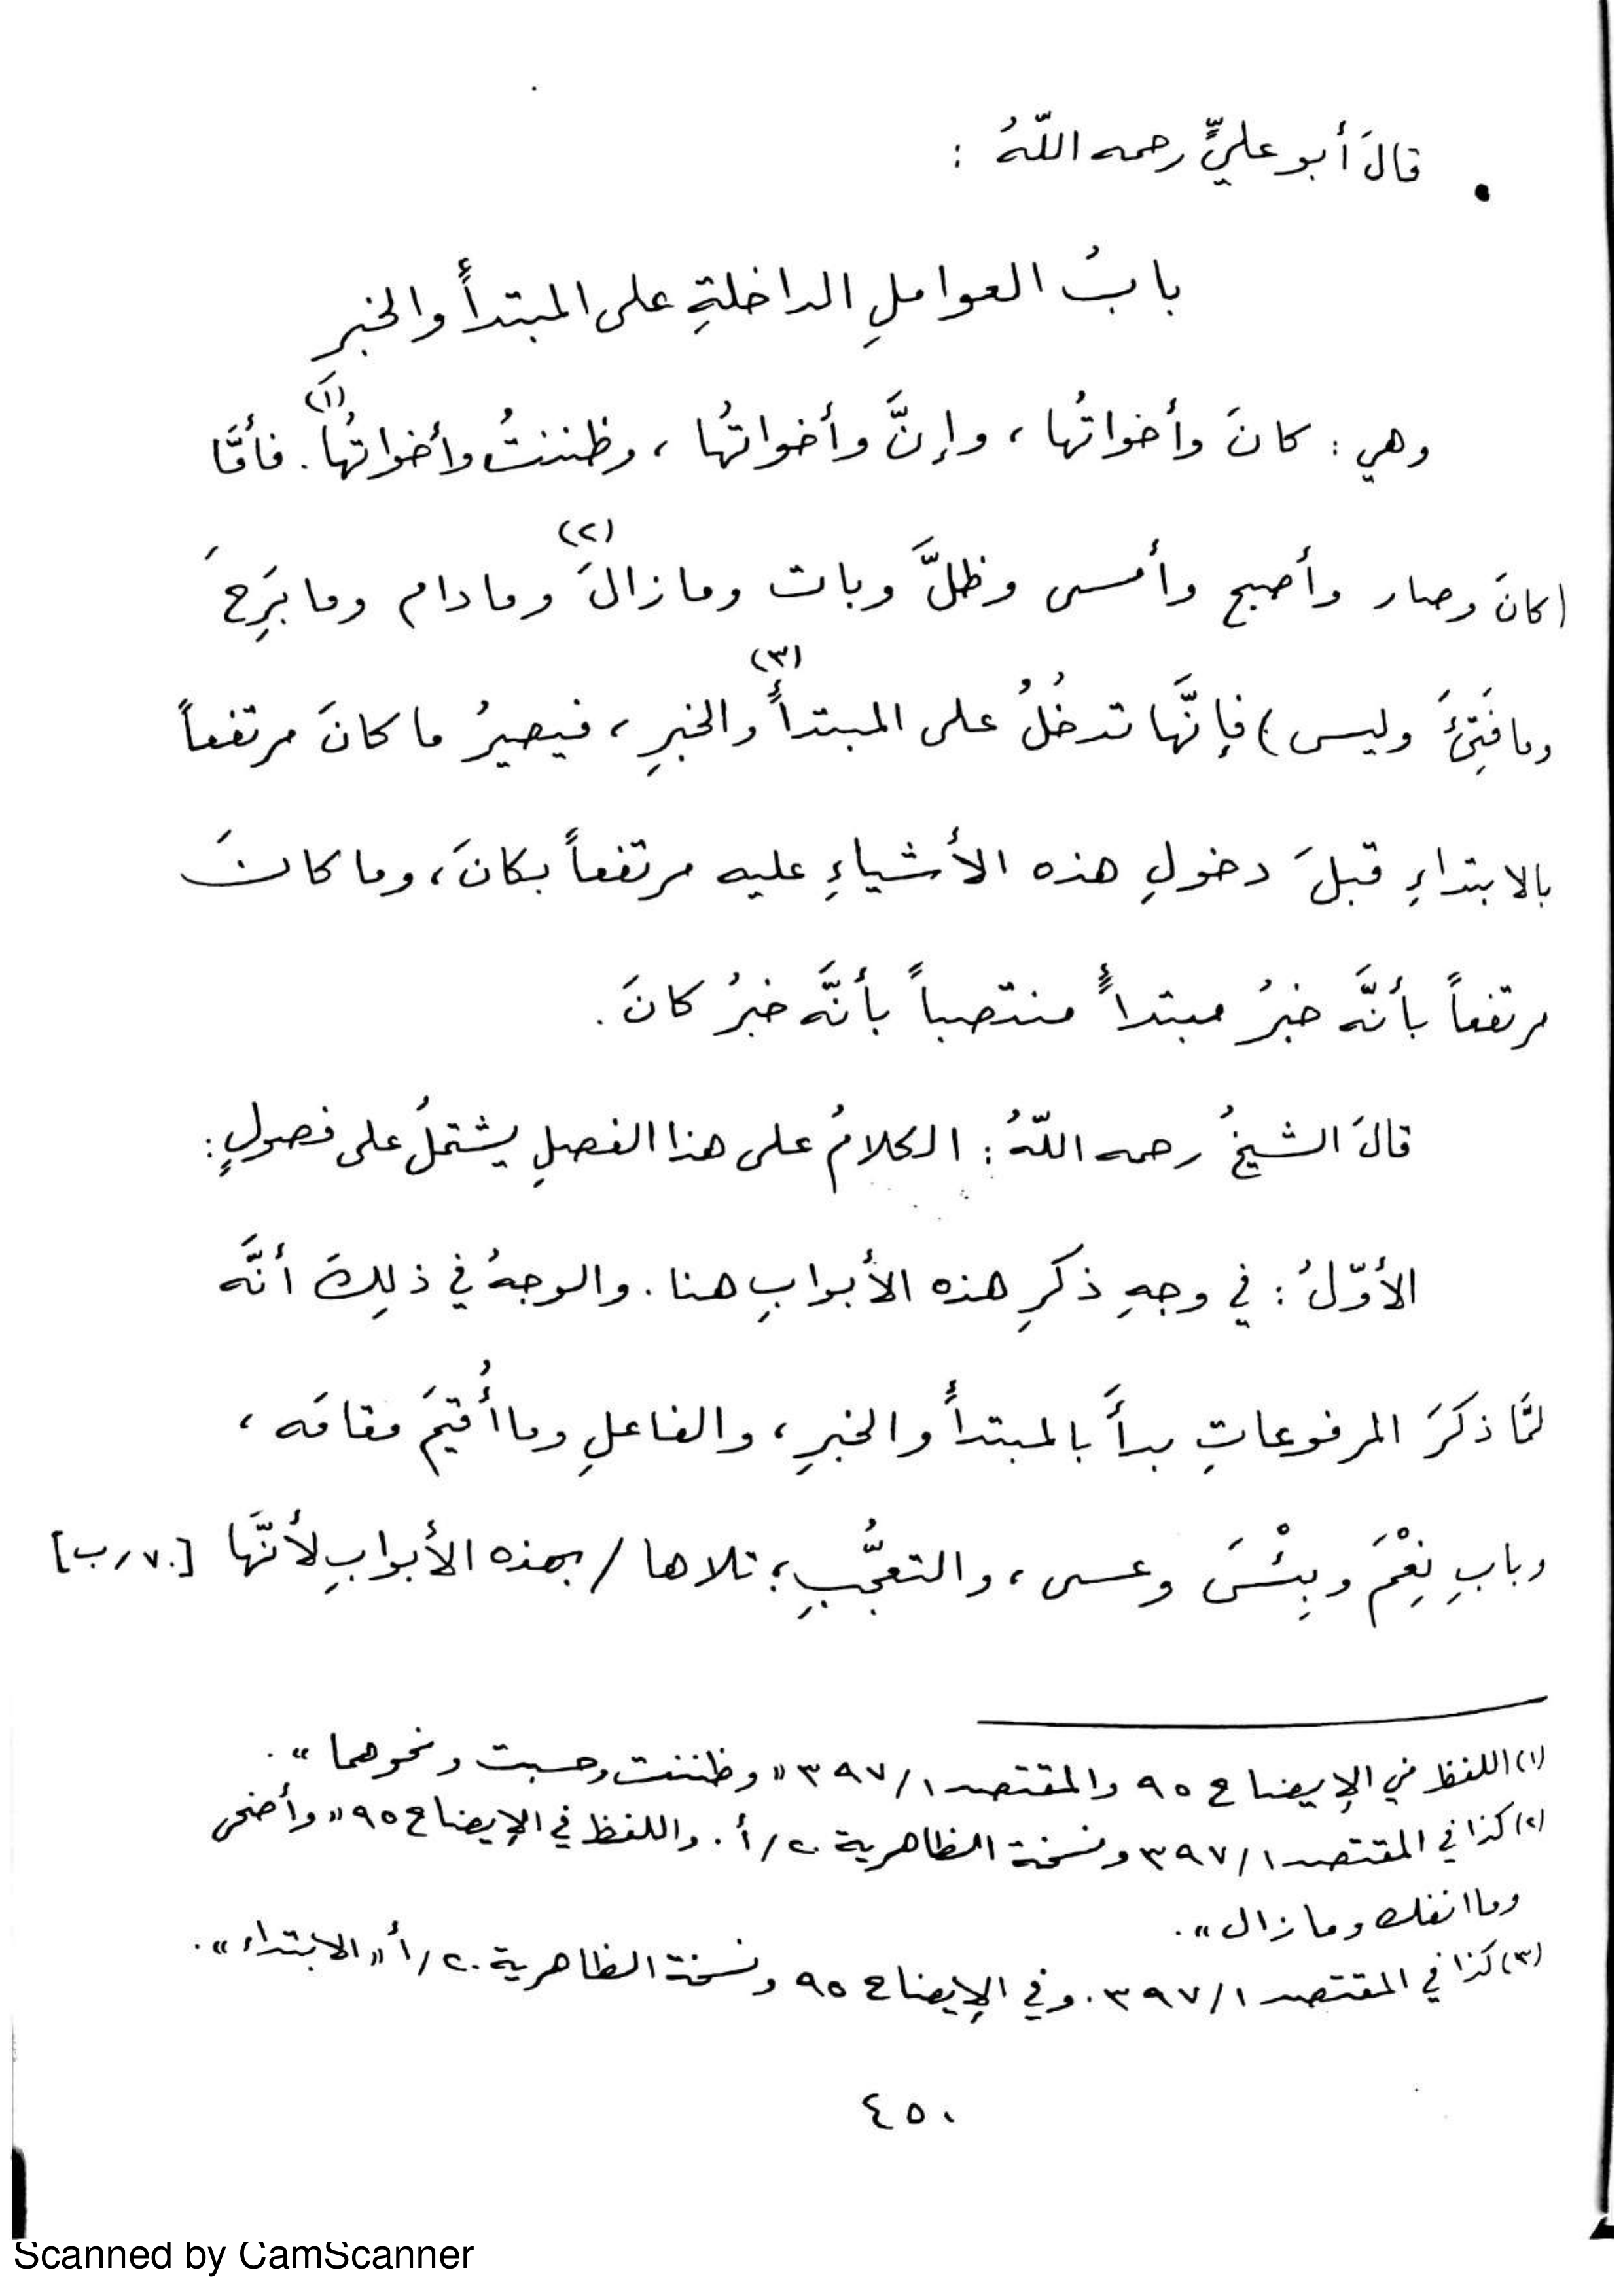 • قالَ أبو عليٍّ رحمه اللّهُ :
بابُ العواملِ الداخلةِ على المبتدأَ والخبرِ
وهي : كانَ وأخواتُها ، وإنَّ وأخواتُها ، وظننتُ وأخواتُها(١) . فأمَّا
(كانَ وصار وأصبح وأمسى وظلَّ وبات ومازالَ(٢) ومادام ومابَرِحَ
ومافَتِئَ وليس) فإنَّها تدخُلُ على المبتدأَ(٣) والخبرِ ، فيصيرُ ما كانَ مرتفعاً
بالابتداءِ قبلَ دخولِ هذه الأشياءِ عليه مرتفعاً بكانَ ، وما كانَ
مرتفعاً بأنَّه خبرُ مبتدأٍ منتصباً بأنَّه خبرُ كانَ .
قالَ الشيخُ رحمه اللّهُ : الكلامُ على هذا الفصلِ يشتملُ على فصولٍ :
الأوّلُ : في وجهِ ذكرِ هذه الأبوابِ هنا . والوجهُ في ذلِكَ أنَّه
لمَّا ذكرَ المرفوعاتِ بدأَ بالمبتدأَ والخبرِ ، والفاعلِ وما أُقيمَ مقامَه ،
وبابِ نِعْمَ وبِئْسَ وعسى ، والتعجُّبِ ؛ تلاها / بهذه الأبوابِ لأنَّها [٧٠/ب]
(١) اللفظ في الإيضاح ٩٥ والمقتصد ٣٩٧/١ « وظننت وحسبت ونحوهما » .
(٢) كذا في المقتصد ٣٩٧/١ ونسخة الظاهرية ٢٠/أ . واللفظ في الإيضاح ٩٥ « وأضحى
وما انفك وما زال » .
(٣) كذا في المقتصد ٣٩٧/١ . وفي الإيضاح ٩٥ ونسخة الظاهرية ٢٠/أ « الابتداء » .
٤٥٠
Scanned by CamScanner